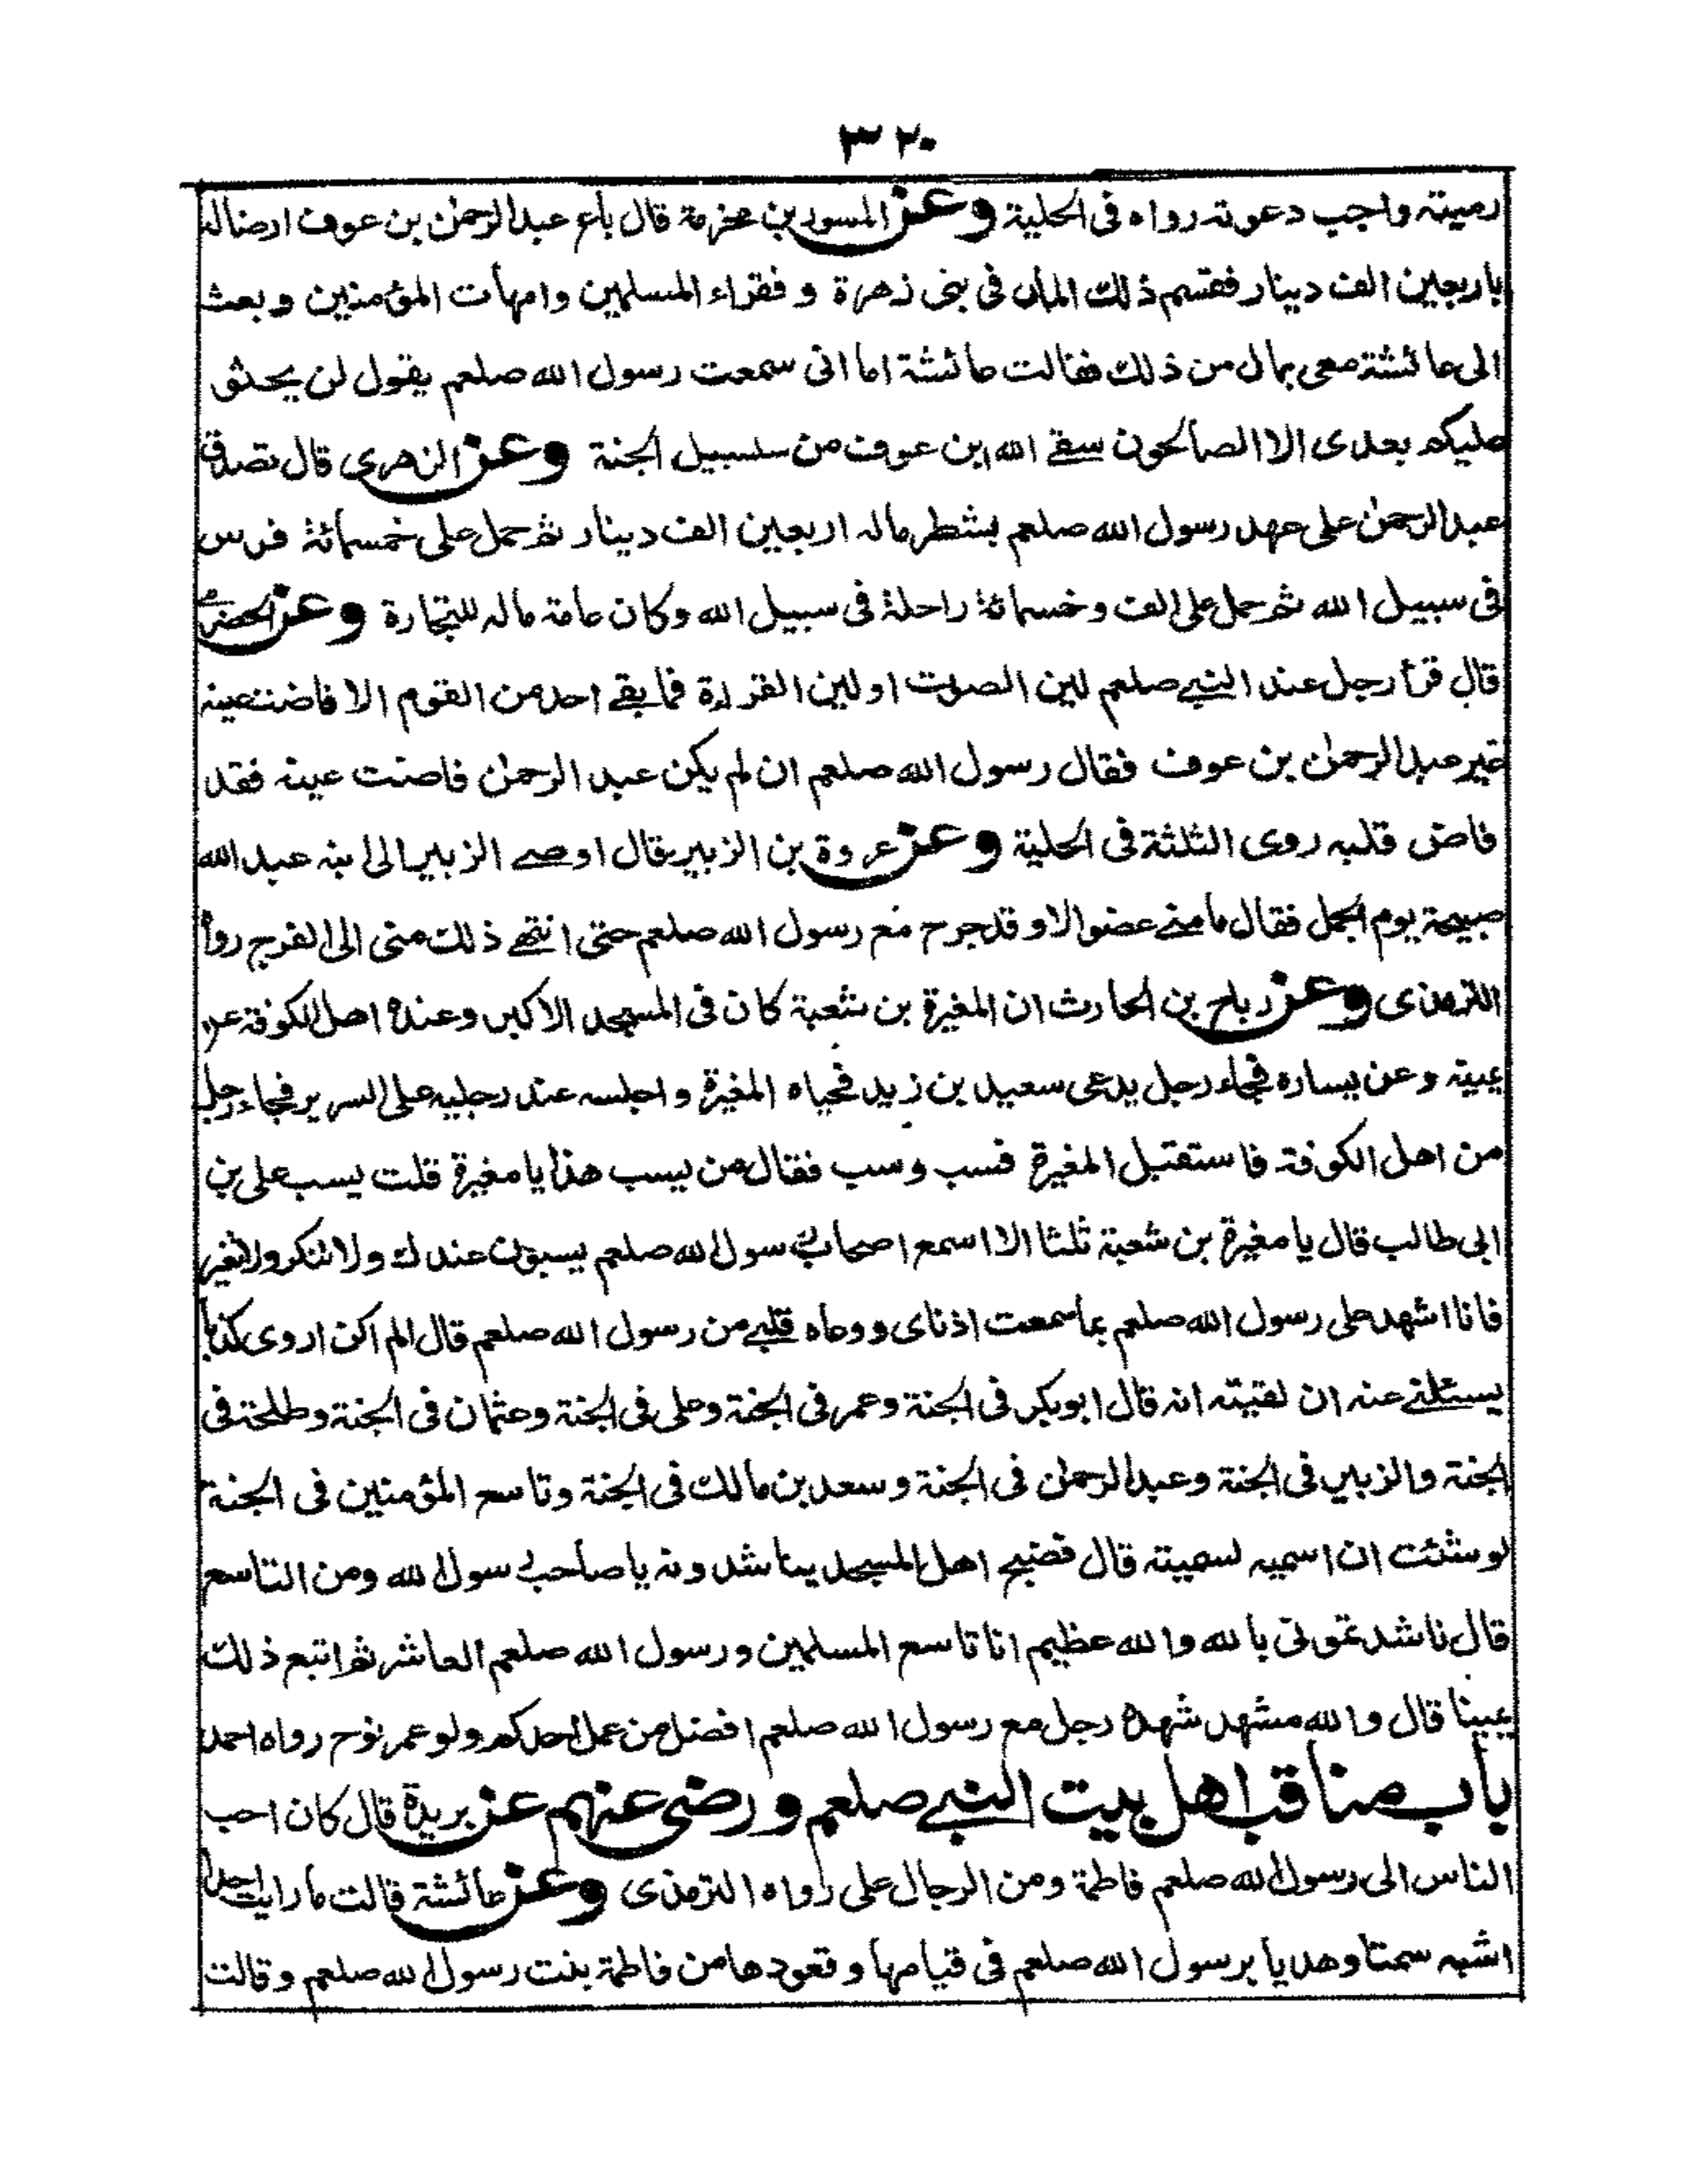 ٣٢٠
رميته واجب دعوته رواه فى الحلية وعن المسور بن مخرمة قال باع عبد الرحمٰن بن عوف ارضا له
باربعين الف دينار فقسم ذلك المال فى بنى زهرة و فقراء المسلمين وامهات المؤمنين و بعث
الى عائشة معى بمال من ذلك فقالت عائشة اما انى سمعت رسول الله صلعم يقول لن يحنو
عليكم بعدى الا الصالحون سقے الله ابن عوف من سلسبيل الجنة وعن الزهرى قال تصدق
عبد الرحمٰن على عهد رسول الله صلعم بشطر ماله اربعين الف دينار ثم حمل على خمسمائة فرس
فى سبيل الله ثم حمل على الف وخمسمائة راحلة فى سبيل الله وكان عامة ماله للتجارة وعن الحضرمے
قال قرأ رجل عند النبے صلعم لين الصوت او لين القراءة فما بقے احد من القوم الا فاضت عينه
غير عبد الرحمٰن بن عوف فقال رسول الله صلعم ان لم يكن عبد الرحمٰن فاضت عينه فقد
فاض قلبه روى الثلثة فى الحلية وعن عروة بن الزبير قال اوصے الزبير الى ابنه عبد الله
صبيحة يوم الجمل فقال ما منے عضو الا وقد جرح مع رسول الله صلعم حتى انتهے ذلك منى الى الفرج رواه
الترمذى وعن رباح بن الحارث ان المغيرة بن شعبة كان فى المسجد الاكبر وعنده اهل الكوفة عن
يمينه وعن يساره فجاء رجل يدعى سعيد بن زيد فحياه المغيرة واجلسه عند رجليه على السرير فجاء رجل
من اهل الكوفة فاستقبل المغيرة فسب وسب فقال من يسب هذا يا مغيرة قلت يسب على بن
ابى طالب قال يا مغيرة بن شعبة ثلثا الا اسمع اصحاب رسول الله صلعم يسبون عندك ولا تنكر ولا تغير
فانا اشهد على رسول الله صلعم بما سمعت اذناى ووعاه قلبے من رسول الله صلعم قال الم اكن اروى كذبا
يسئلنے عنه ان لقيته انه قال ابوبكر فى الجنة وعمر فى الجنة وعلى فى الجنة وعثمان فى الجنة وطلحة فى
الجنة والزبير فى الجنة وعبد الرحمٰن فى الجنة وسعد بن مالك فى الجنة وتاسع المؤمنين فى الجنة
لو شئت ان اسميه لسميته قال فضج اهل المسجد يناشدونه يا صاحب رسول الله ومن التاسع
قال ناشدتمونى بالله والله عظيم انا تاسع المسلمين ورسول الله صلعم العاشر ثم اتبع ذلك
يمينا قال والله مشهد شهده رجل مع رسول الله صلعم افضل من عمل احدكم ولو عمر نوح رواه احمد
باب مناقب اهل بيت النبے صلعم ورضى عنهم عن بريدة قال كان احب
الناس الى رسول الله صلعم فاطمة ومن الرجال على رواه الترمذى وعن عائشة قالت ما رايت احدا
اشبه سمتا وهديا برسول الله صلعم فى قيامها وقعودها من فاطمة بنت رسول الله صلعم وقالت